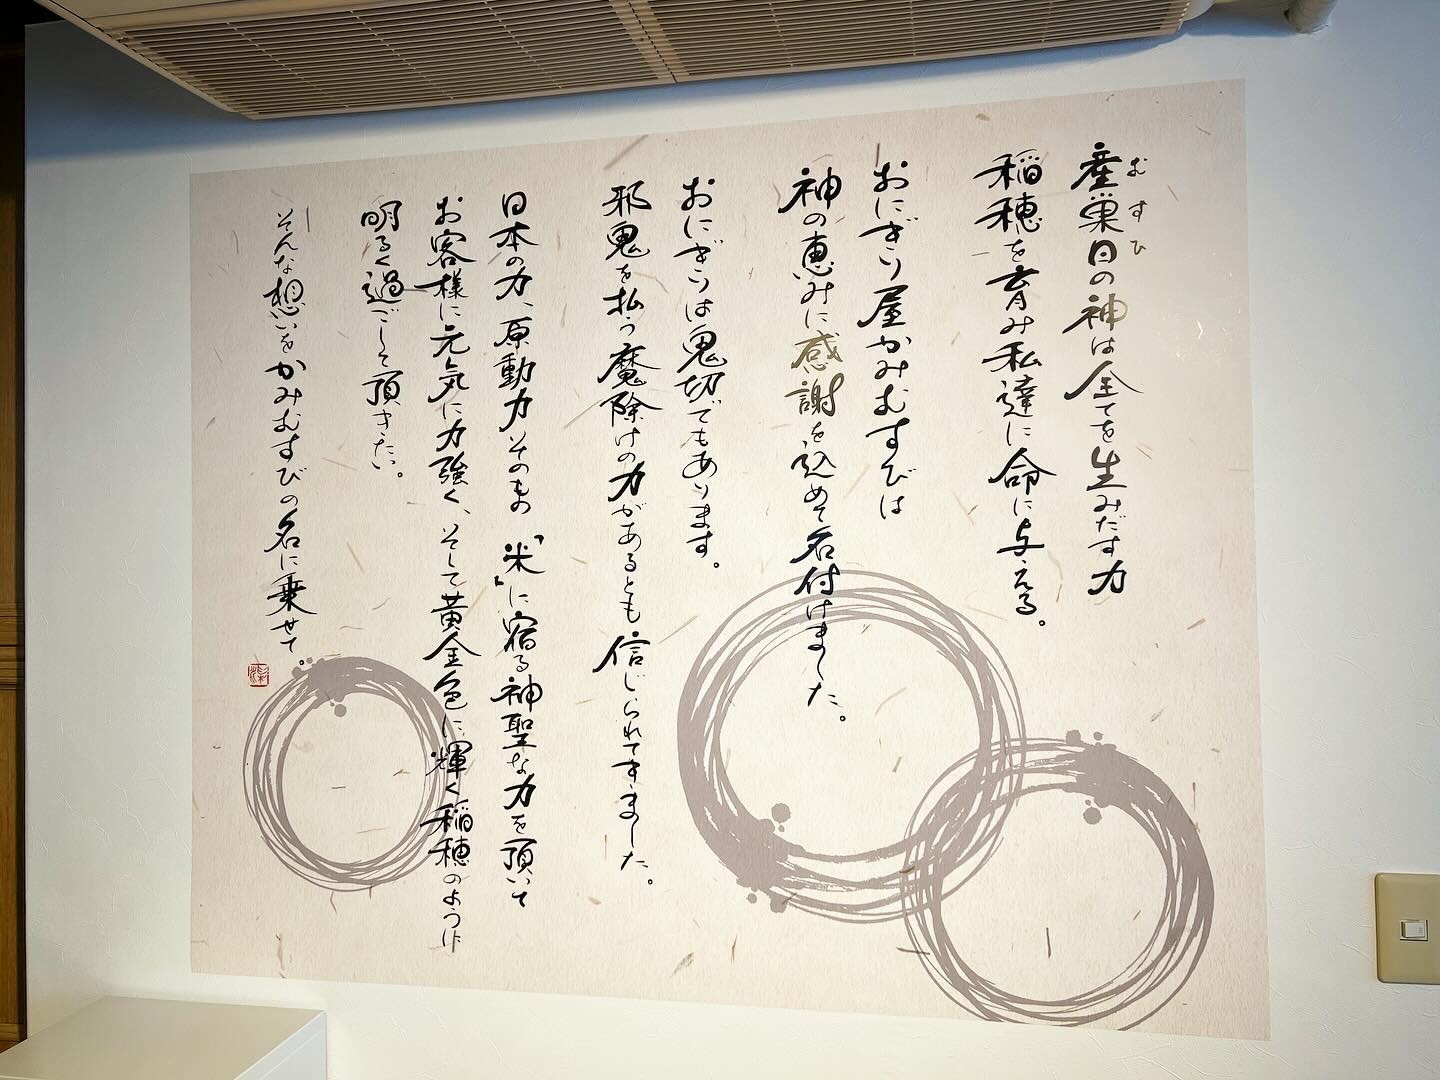 産巣日の神は全てを生みだす力
むすひ
稲穂を育み私達に命に与える。
おにぎり屋かみむすびは
神の恵みに感謝を込めて名付けました。
おにぎりは鬼切でもあります。
邪鬼を払う魔除けの力があるとも信じられてきました。
日本の力、原動力そのもの『米』に宿る神聖な力を頂いて
お客様に元気に力強く、そして黄金色に輝く稲穂のように
明るく過ごして頂きたい。
そんな想いをかみむすびの名に乗せて。